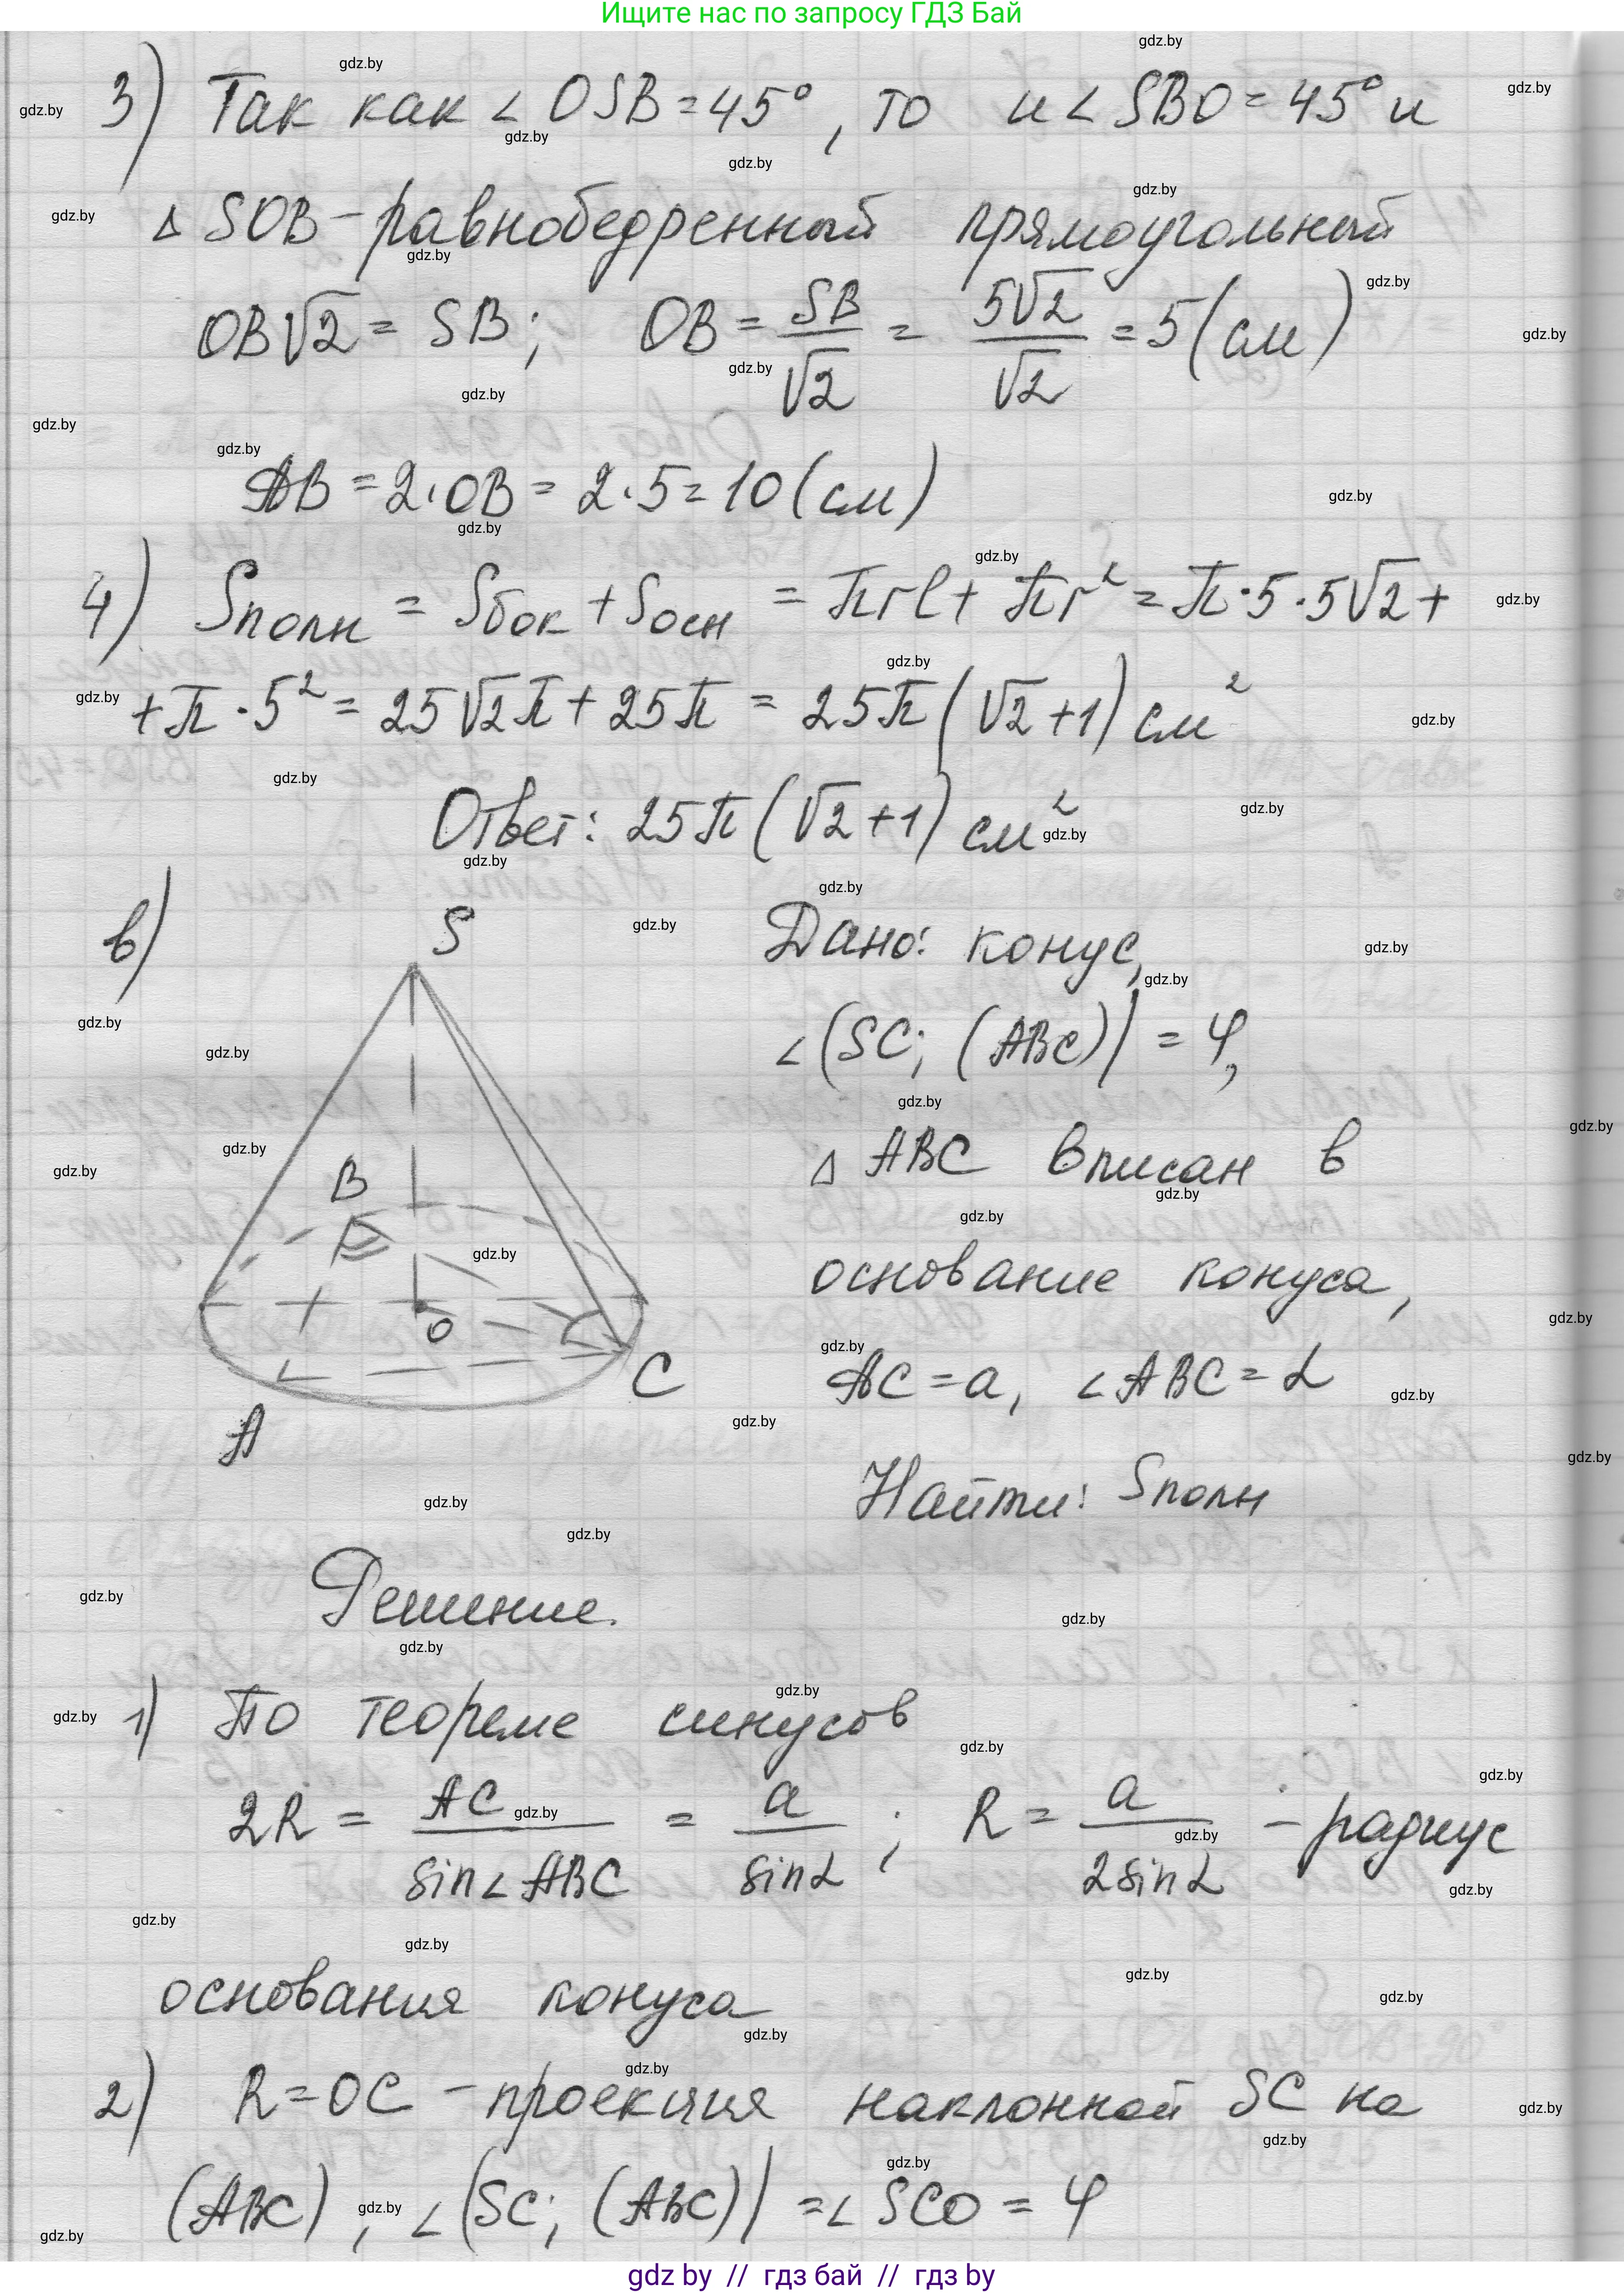 Ищите нас по запросу ГДЗ Бай
3) Так как ∠ OSB = 45°, то и ∠ SBO = 45° и
Δ SOB - равнобедренный прямоугольный
OB√2 = SB; OB = SB/√2 = 5√2/√2 = 5 (см)
AB = 2·OB = 2·5 = 10 (см)
4) Sполн = Sбок + Sосн = πrl + πr² = π·5·5√2 +
+ π·5² = 25√2π + 25π = 25π(√2+1) см²
Ответ: 25π(√2+1) см²
в)
S
B
O
C
A
Дано: конус,
∠(SC; (ABC)) = φ,
Δ ABC вписан в
основание конуса,
AC = a, ∠ABC = α
Найти: Sполн
Решение.
1) По теореме синусов
2R = AC/sin∠ABC = a/sinα ; R = a/2sinα - радиус
основания конуса
2) R = OC - проекция наклонной SC на
(ABC), ∠(SC; (ABC)) = ∠ SCO = φ
gdz by // гдз бай // гдз by